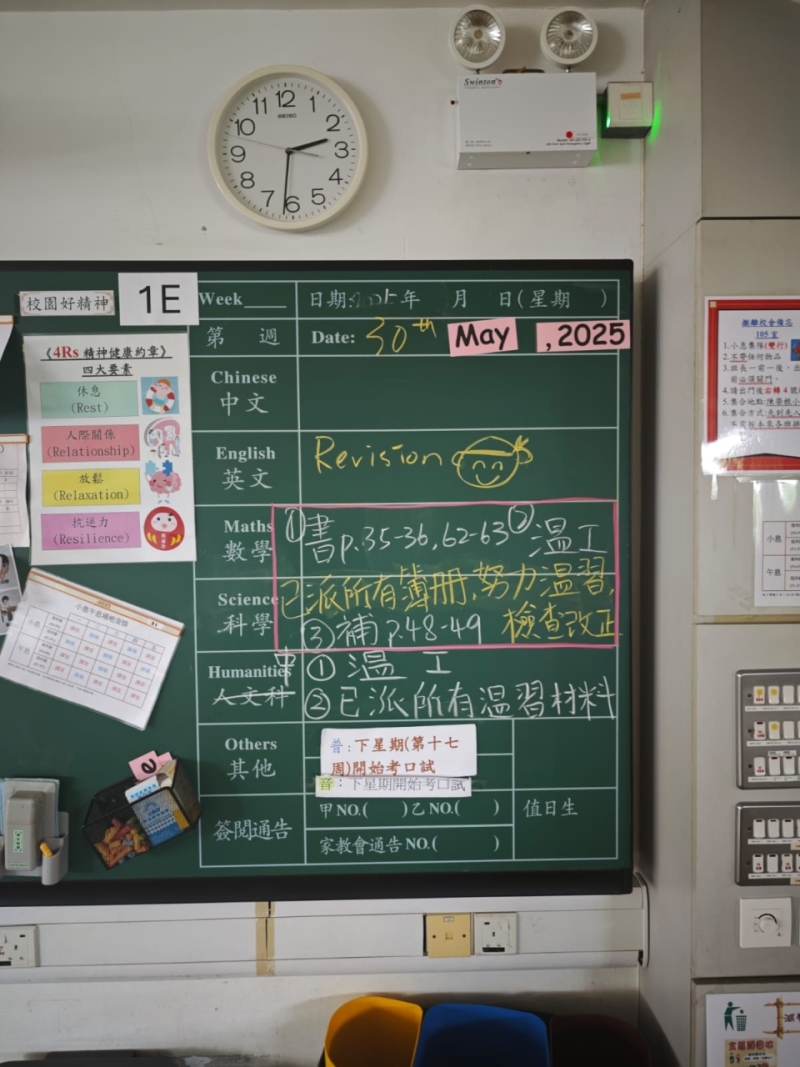 SEIKO
Swinton
校園好精神
1E
Week
日期: 年 月 日(星期 )
第 週
Date: 30th May ,2025
《4Rs 精神健康約章》
四大要素
休息
(Rest)
人際關係
(Relationship)
放鬆
(Relaxation)
抗逆力
(Resilience)
Chinese
中文
English
英文
Revision
Maths
數學
①書p.35-36,62-63 ②溫工
已派所有簿冊,努力溫習,
Science
科學
③補p.48-49 檢查改正
Humanities
人文科
中 ①溫工
②已派所有溫習材料
Others
其他
音:下星期(第十七
周)開始考口試
音:下星期開始考口試
簽閱通告
甲NO.( )乙NO.( )
家教會通告NO.( )
值日生
撤離校舍備忘
105室
1.小息集隊(雙行)
2.不帶任何物品
小息
午息